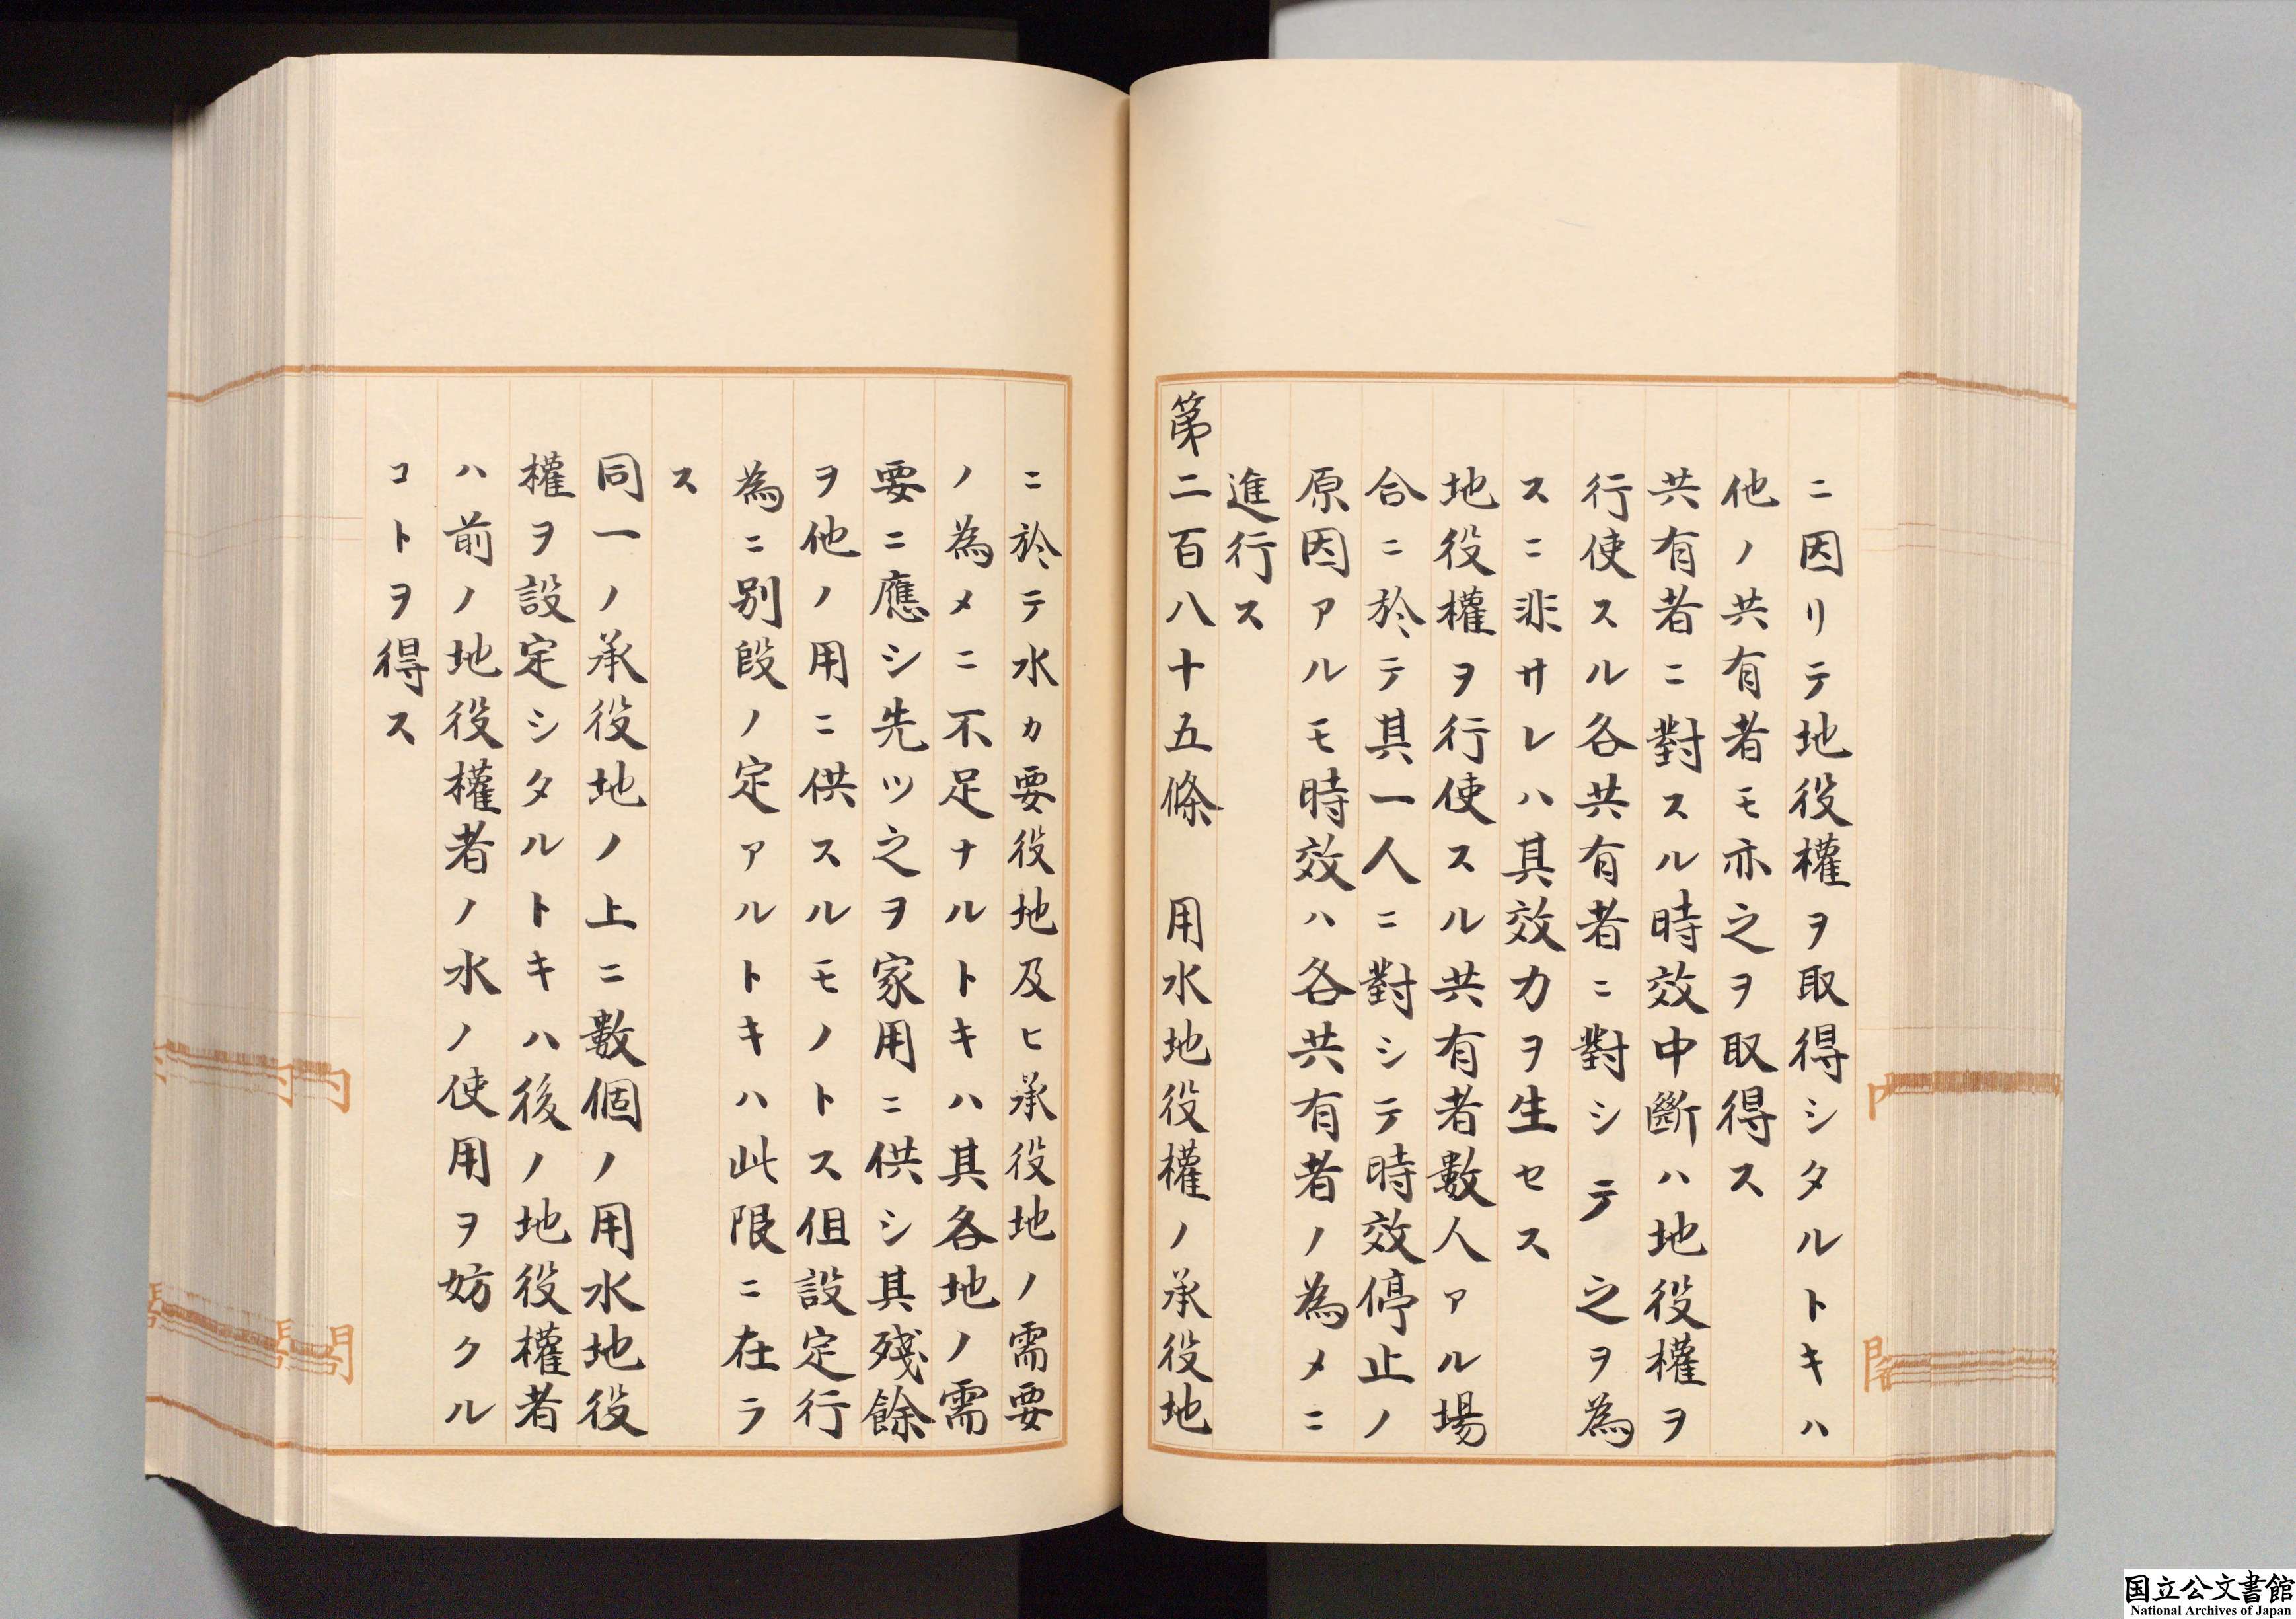 ニ因リテ地役權ヲ取得シタルトキハ
他ノ共有者モ亦之ヲ取得ス
共有者ニ對スル時效中斷ハ地役權ヲ
行使スル各共有者ニ對シテ之ヲ為
スニ非サレハ其效力ヲ生セス
地役權ヲ行使スル共有者數人アル場
合ニ於テ其一人ニ對シテ時效停止ノ
原因アルモ時效ハ各共有者ノ為メニ
進行ス
第二百八十五條 用水地役權ノ承役地
ニ於テ水カ要役地及ヒ承役地ノ需要
ノ為メニ不足ナルトキハ其各地ノ需
要ニ應シ先ツ之ヲ家用ニ供シ其殘餘
ヲ他ノ用ニ供スルモノトス但設定行
為ニ別段ノ定アルトキハ此限ニ在ラ
ス
同一ノ承役地ノ上ニ數個ノ用水地役
權ヲ設定シタルトキハ後ノ地役權者
ハ前ノ地役權者ノ水ノ使用ヲ妨クル
コトヲ得ス
国立公文書館
National Archives of Japan